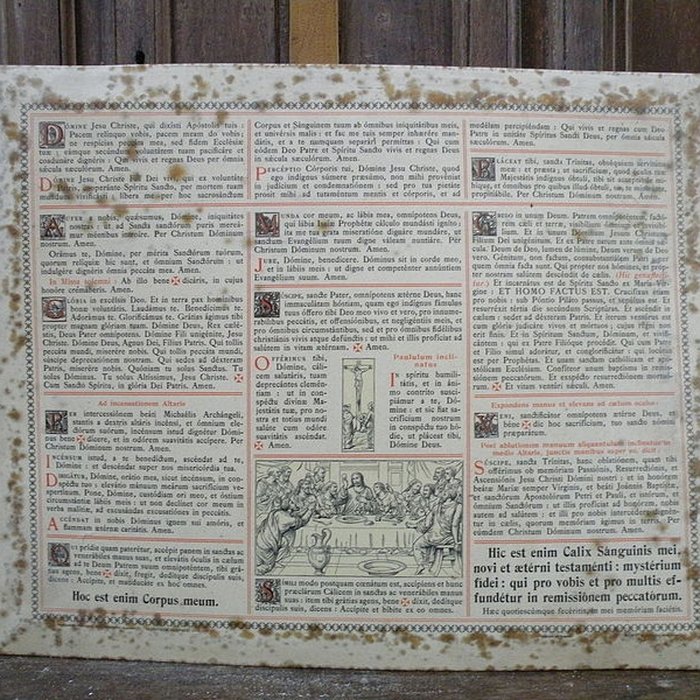 DÓMINE Jesu Christe, qui dixísti Apóstolis tuis :
Pacem relínquo vobis, pacem meam do vobis;
ne respícias peccáta mea, sed fidem Ecclésiæ
tuæ : eámque secúndum voluntátem tuam pacificáre et
coadunáre dignéris : Qui vivis et regnas Deus per ómnia
sǽcula sæculórum. Amen.
DÓMINE Jesu Christe, Fili Dei vivi, qui ex voluntáte
Patris, cooperánte Spíritu Sancto, per mortem tuam
mundum vivificásti, libera me per hoc sacrosánctum
Corpus et Sánguinem tuum ab ómnibus iniquitátibus meis,
et univérsis malis : et fac me tuis semper inhærére man-
dátis, et a te numquam separári permíttas : Qui cum
eódem Deo Patre et Spíritu Sancto vivis et regnas Deus
in sǽcula sæculórum. Amen.
PERCÉPTIO Córporis tui, Dómine Jesu Christe, quod
ego indígnus súmere præsúmo, non mihi provéniat
in judícium et condemnatiónem : sed pro tua pietáte
prosit mihi ad tutaméntum mentis et córporis, et ad
medélam percipiéndam : Qui vivis et regnas cum Deo
Patre in unitáte Spíritus Sancti Deus, per ómnia sǽcula
sæculórum. Amen.
PLÁCEAT tibi, sancta Trínitas, obséquium servitútis
meæ : et præsta, ut sacrifícium, quod óculis tuæ
Majestátis indígnus óbtuli, tibi sit acceptábile, mi-
híque, et ómnibus pro quibus illud óbtuli, sit, te miseránte,
propitiábile. Per Christum Dóminum nostrum. Amen.
AUFER a nobis, quǽsumus, Dómine, iniquitátes
nostras : ut ad Sancta sanctórum puris mereá-
mur méntibus introíre. Per Christum Dóminum
nostrum. Amen.
Orámus te, Dómine, per mérita Sanctórum tuórum,
quorum relíquiæ hic sunt, et ómnium Sanctórum : ut
indulgére dignéris ómnia peccáta mea. Amen.
In Missa solemni : Ab illo bene✠dicáris, in cujus
honóre cremáberis. Amen.
GLÓRIA in excélsis Deo. Et in terra pax homínibus
bonæ voluntátis. Laudámus te. Benedícimus te.
Adorámus te. Glorificámus te. Grátias ágimus tibi
propter magnam glóriam tuam. Dómine Deus, Rex cælé-
stis, Deus Pater omnípotens. Dómine Fili unigénite, Jesu
Christe. Dómine Deus, Agnus Dei, Fílius Patris. Qui tollis
peccáta mundi, miserére nobis. Qui tollis peccáta mundi,
súscipe deprecatiónem nostram. Qui sedes ad déxteram
Patris, miserére nobis. Quóniam tu solus Sanctus. Tu
solus Dóminus. Tu solus Altíssimus, Jesu Christe. ✠
Cum Sancto Spíritu, in glória Dei Patris. Amen.
Ad incensationem Altaris
PER intercessiónem beáti Michaélis Archángeli,
stantis a dextris altáris incénsi, et ómnium ele-
ctórum suórum, incénsum istud dignétur Dómi-
nus bene✠dícere, et in odórem suavitátis accípere. Per
Christum Dóminum nostrum. Amen.
INCÉNSUM istud, a te benedíctum, ascéndat ad te,
Dómine : et descéndat super nos misericórdia tua.
DIRIGÁTUR, Dómine, orátio mea, sicut incénsum, in con-
spéctu tuo : elevátio mánuum meárum sacrifícium ve-
spertínum. Pone, Dómine, custódiam ori meo, et óstium
circumstántiæ lábiis meis : ut non declínet cor meum in
verba malítiæ, ad excusándas excusatiónes in peccátis.
ACCÉNDAT in nobis Dóminus ignem sui amóris, et
flammam ætérnæ caritátis. Amen.
QUI prídie quam paterétur, accépit panem in sanctas ac
venerábiles manus suas, et elevátis óculis in cælum
ad te Deum Patrem suum omnipoténtem, tibi grá-
tias agens, bene✠díxit, fregit, dedítque discípulis suis,
dicens : Accípite, et manducáte ex hoc omnes.
Hoc est enim Corpus meum.
MUNDA cor meum, ac lábia mea, omnípotens Deus,
qui lábia Isaíæ Prophétæ cálculo mundásti igníto :
ita me tua grata miseratióne dignáre mundáre, ut
sanctum Evangélium tuum digne váleam nuntiáre. Per
Christum Dóminum nostrum. Amen.
JUBE, Dómine, benedícere. Dóminus sit in corde meo,
et in lábiis meis : ut digne et competénter annúntiem
Evangélium suum. Amen.
SÚSCIPE, sancte Pater, omnípotens ætérne Deus, hanc
immaculátam hóstiam, quam ego indígnus fámulus
tuus óffero tibi Deo meo vivo et vero, pro innume-
rabílibus peccátis, et offensiónibus, et negligéntiis meis, et
pro ómnibus circumstántibus, sed et pro ómnibus fidélibus
christiánis vivis atque defúnctis : ut mihi et illis profíciat ad
salútem in vitam ætérnam. ✠ Amen.
OFFÉRIMUS tibi,
Dómine, cáli-
cem salutáris, tuam
deprecántes clemén-
tiam : ut in con-
spéctu divínæ Ma-
jestátis tuæ, pro no-
stra et totíus mundi
salúte cum odóre
suavitátis ascéndat.
✠ Amen.
Paululum incli-
natus
IN spíritu humili-
tátis, et in áni-
mo contríto susci-
piámur a te, Dó-
mine : et sic fiat sa-
crifícium nostrum
in conspéctu tuo hó-
die, ut pláceat tibi,
Dómine Deus.
SÍMILI modo postquam cœnátum est, accípiens et hunc
præclárum Cálicem in sanctas ac venerábiles manus
suas : item tibi grátias agens, bene✠díxit, dedítque
discípulis suis, dicens : Accípite et bíbite ex eo omnes.
CREDO in unum Deum. Patrem omnipoténtem, factó-
rem cæli et terræ, visibílium ómnium et invisibí-
lium. Et in unum Dóminum Jesum Christum,
Fílium Dei unigénitum. Et ex Patre natum ante ómnia sǽ-
cula. Deum de Deo, lumen de lúmine, Deum verum de Deo
vero. Génitum, non factum, consubstantiálem Patri : per
quem ómnia facta sunt. Qui propter nos hómines, et pro-
pter nostram salútem descéndit de cælis. (Hic genuflecti-
tur.) Et incarnátus est de Spíritu Sancto ex María Vír-
gine : ET HOMO FACTUS EST. Crucifíxus étiam
pro nobis : sub Póntio Piláto passus, et sepúltus est. Et
resurréxit tértia die secúndum Scriptúras. Et ascéndit in
cælum : sedet ad déxteram Patris. Et íterum ventúrus est
cum glória judicáre vivos et mórtuos : cujus regni non
erit finis. Et in Spíritum Sanctum, Dóminum, et vivifi-
cántem : qui ex Patre Filióque procédit. Qui cum Patre
et Fílio simul adorátur, et conglorificátur : qui locútus
est per Prophétas. Et unam sanctam cathólicam et apo-
stólicam Ecclésiam. Confíteor unum baptísma in remis-
siónem peccatórum. Et exspécto resurrectiónem mortuó-
rum. ✠ Et vitam ventúri sǽculi. Amen.
Expandens manus et elevans ad cælum oculos:
VENI, sanctificátor omnípotens ætérne Deus, et
béne✠dic hoc sacrifícium, tuo sancto nómini
præparátum.
Post ablutionem manuum aliquantulum inclinatus in
medio Altaris, junctis manibus super eo, dicit :
SÚSCIPE, sancta Trínitas, hanc oblatiónem, quam tibi
offérimus ob memóriam Passiónis, Resurrectiónis, et
Ascensiónis Jesu Christi Dómini nostri : et in honórem
beátæ Maríæ semper Vírginis, et beáti Joánnis Baptístæ,
et sanctórum Apostolórum Petri et Pauli, et istórum, et
ómnium Sanctórum : ut illis profíciat ad honórem, nobis
autem ad salútem : et illi pro nobis intercédere dignén-
tur in cælis, quorum memóriam ágimus in terris. Per
eúmdem Christum Dóminum nostrum. Amen.
Hic est enim Calix Sánguinis mei,
novi et ætérni testaménti : mystérium
fídei : qui pro vobis et pro multis ef-
fundétur in remissiónem peccatórum.
Hæc quotiescúmque fecéritis, in mei memóriam faciétis.